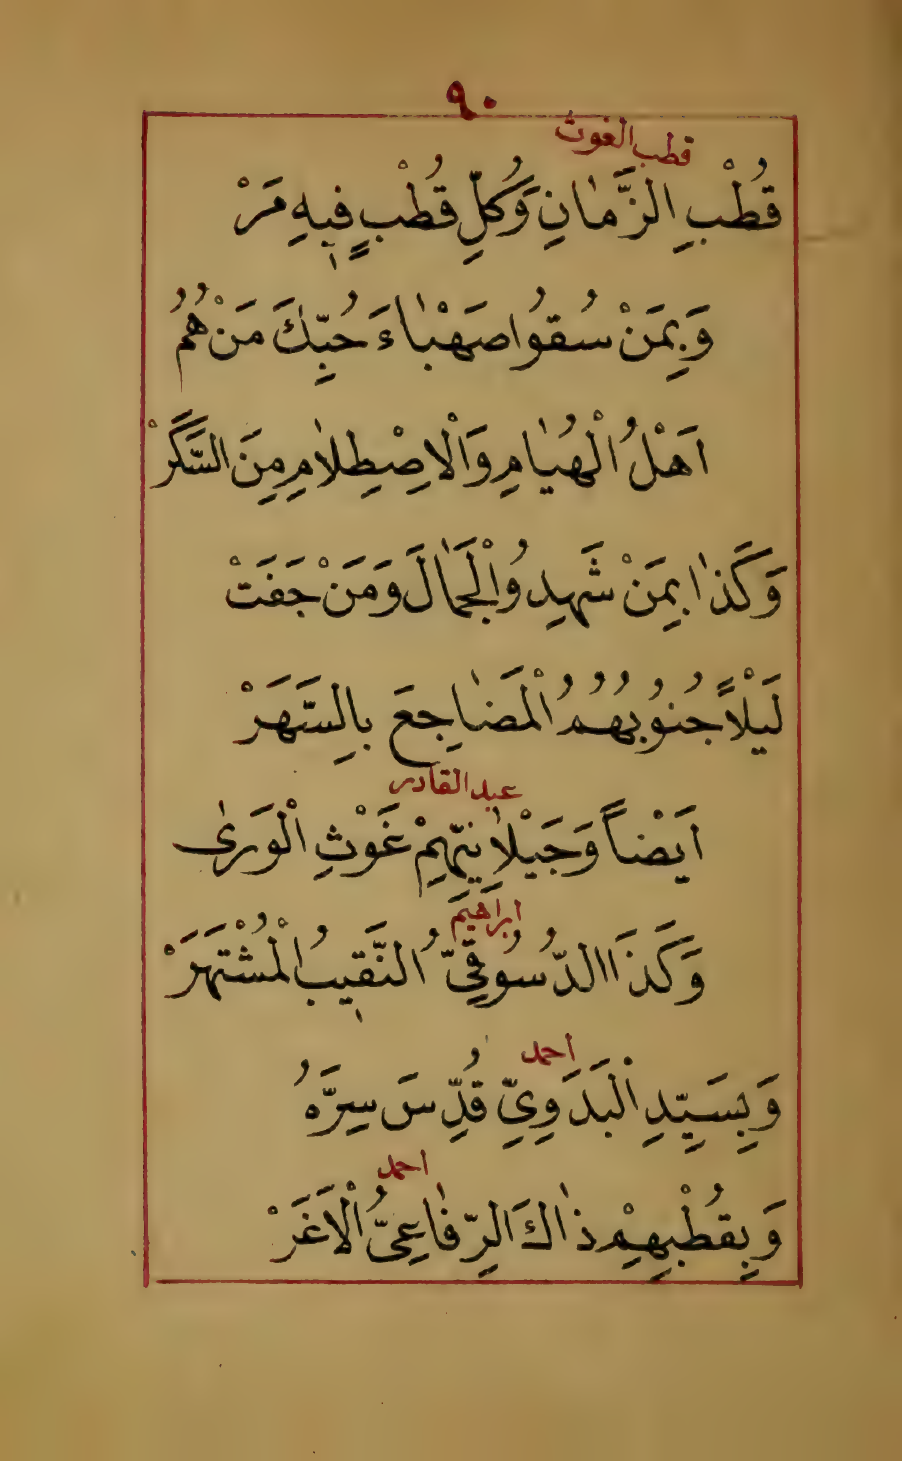 ٩٠
قطب الغوث
قُطْبِ الزَّمَانِ وَكُلِّ قُطْبٍ فِيهِ مَرْ
وَبِمَنْ سُقُوا صَهْبَاءَ حُبِّكَ مَنْ هُمُ
اَهْلُ الْهُيَامِ وَالْاِصْطِلَامِ مِنَ السَّكَرْ
وَكَذَا بِمَنْ شَهِدُوا الْجَمَالَ وَمَنْ جَفَتْ
لَيْلًا جُنُوبُهُمُ الْمَضَاجِعَ بِالسَّهَرْ
عبد القادر
اَيْضاً وَجَيْلَانِيِّهِمْ غَوْثِ الْوَرىٰ
ابراهيم
وَكَذَا الدُّسُوقِيُّ النَّقِيبُ الْمُشْتَهَرْ
احمد
وَبِسَيِّدِ الْبَدَوِيِّ قُدِّسَ سِرَّهُ
احمد
وَبِقُطْبِهِمْ ذَاكَ الرِّفَاعِيُّ الْاَغَرْ